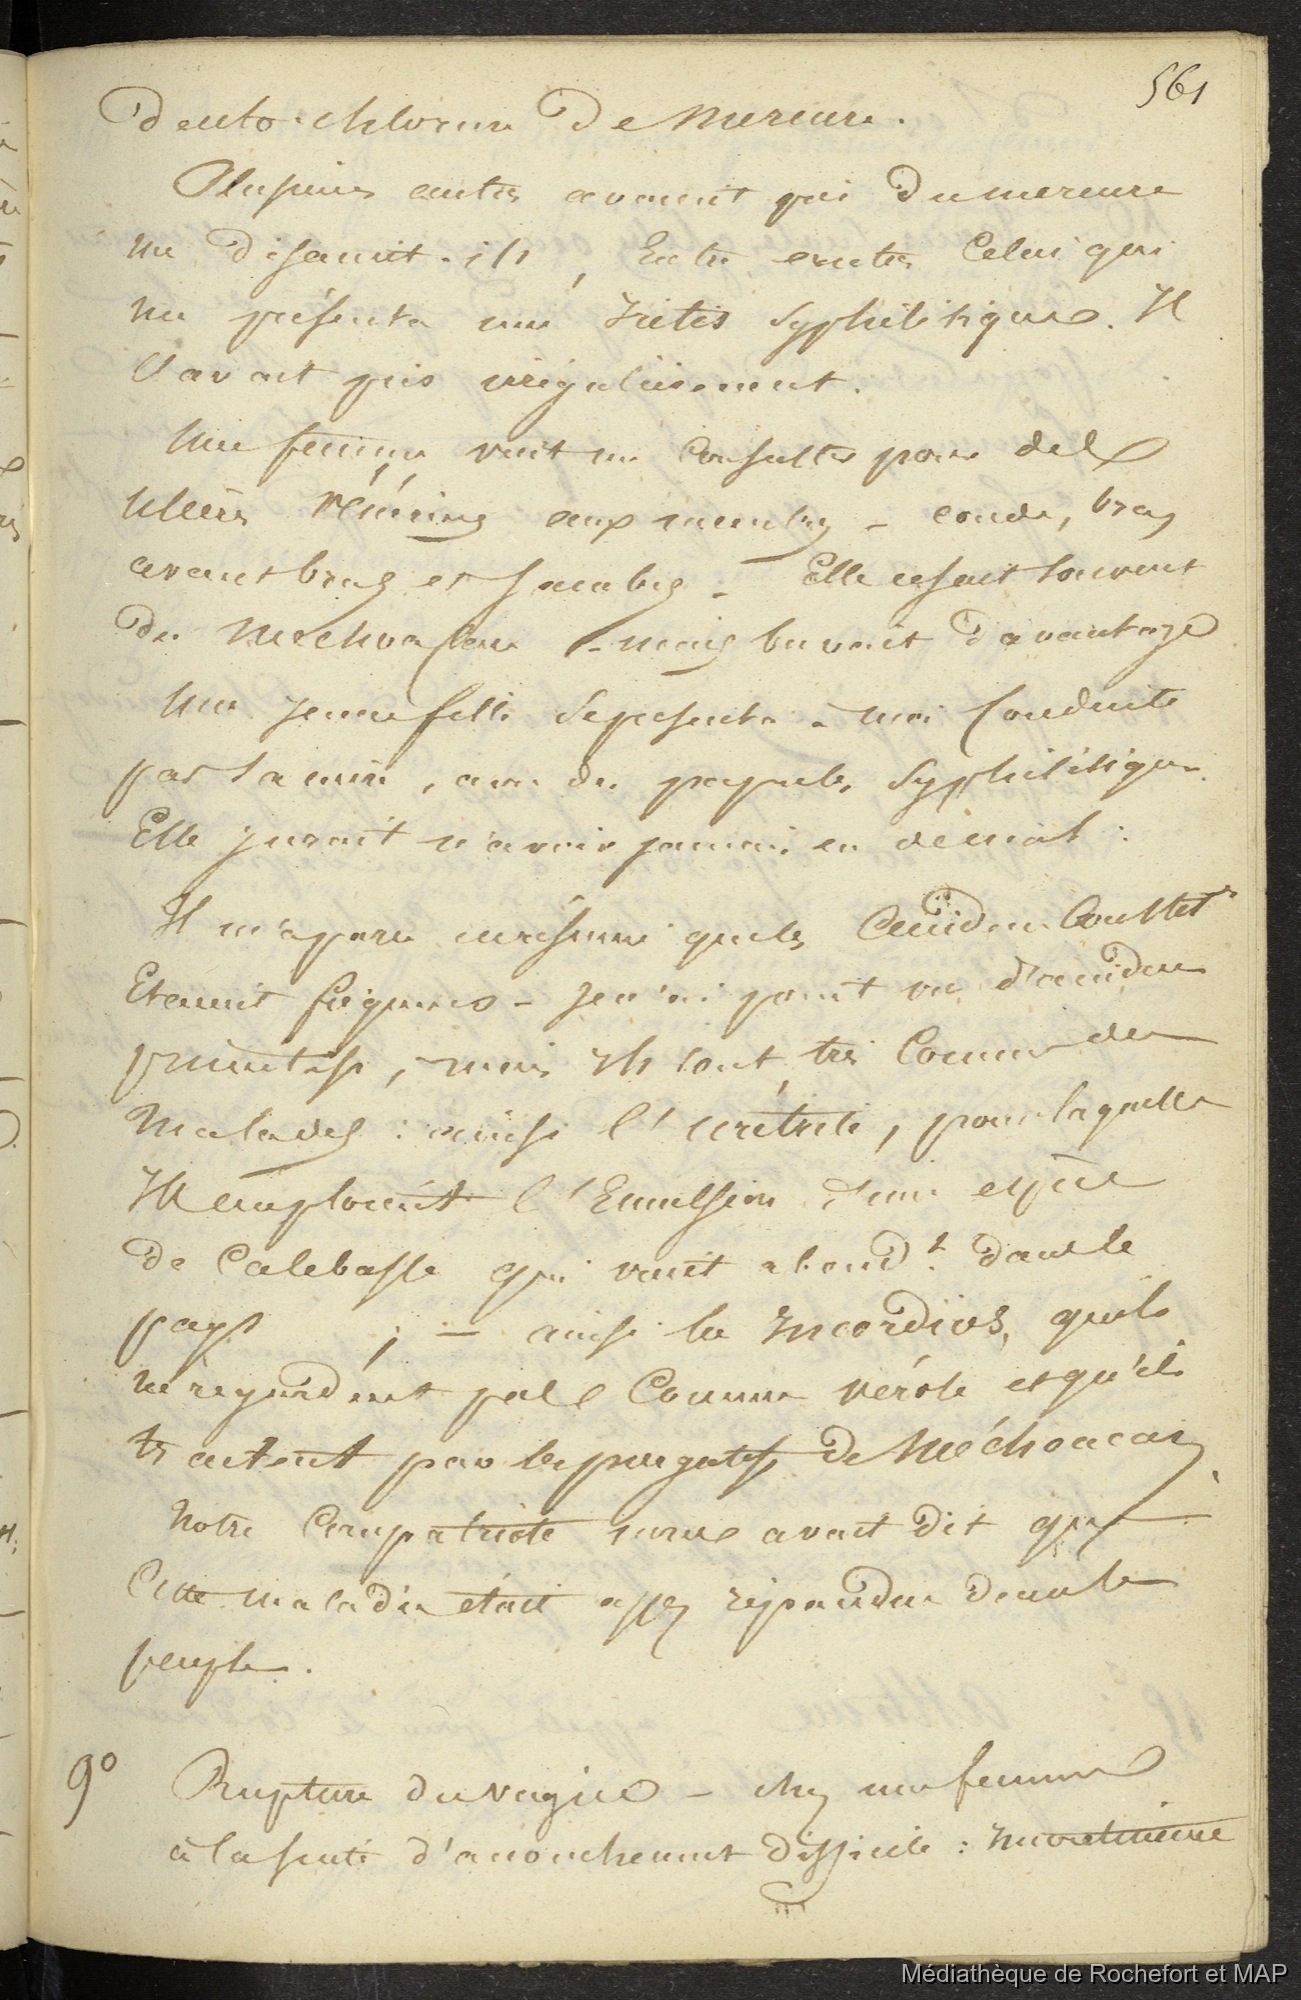 561
Deuto-chlorure De Mercure.
Plusieurs autres avaient pris Du mercure
me Disaient-ils, Entre autres Celui qui
me présenta une Iritis Syphilitique. Il
l'avait pris irrégulièrement.
Une femme vint me Consulter pour des
ulcères vénériens aux membres - coude, bras
avant bras et Jambes - Elle usait souvent
Du Mechoacan - mais buvait Davantage
Une jeune fille Se présenta à moi Conduite
par sa mère, avec des papules Syphilitiques
Elle jurait n'avoir jamais eu de mal :
Il m'a paru que les accidens Constit.ls
Etaient fréquens - Je n'ai point vu d'accidens
primitifs, mais Ils sont très Connus des
Malades : ainsi l'urétrite, pour laquelle
Ils emploient l'Emulsion d'une espèce
De Calebasse qui vient abond.t dans le
pays ; - ainsi les incordios, qu'ils
ne regardent pas Comme vérole et qu'ils
traitent par les purgatifs De Méchoacan,
Notre Compatriote nous avait dit que
Cette maladie était assez répandue Dans le
peuple.
9° Rupture du vagin - chez une femme
à la suite d'accouchement Difficile :
Médiathèque de Rochefort et MAP